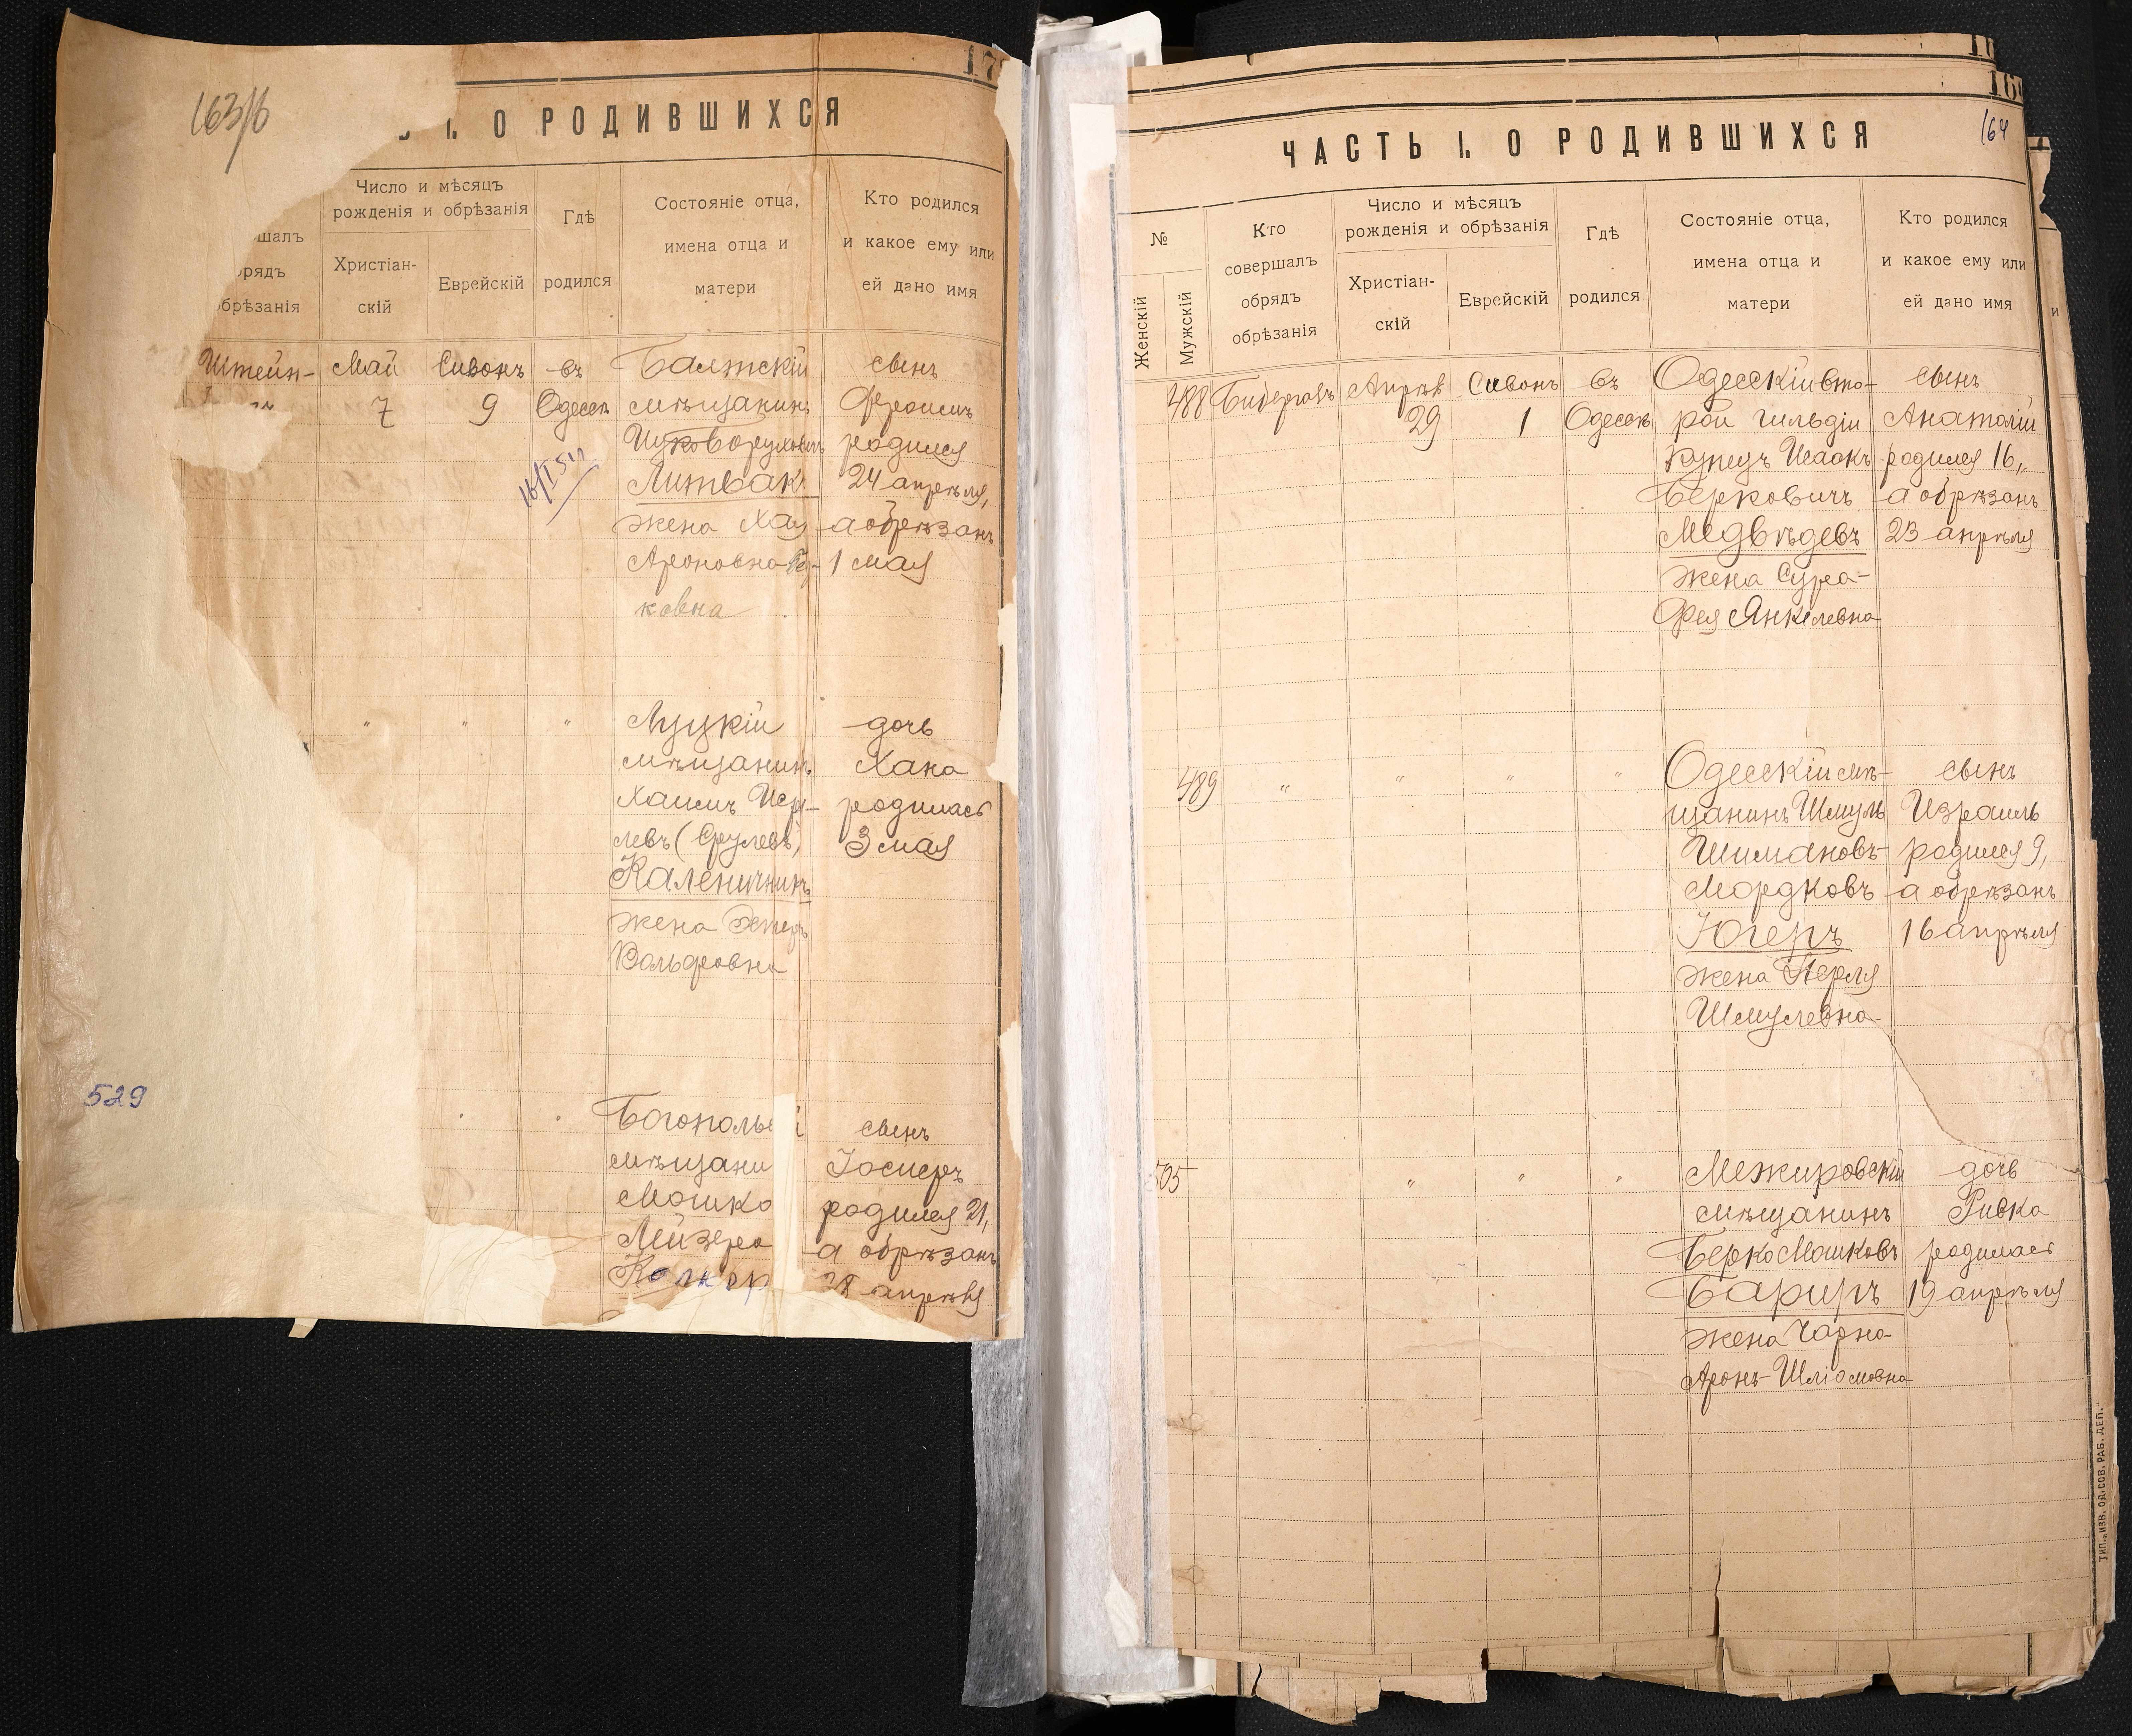 163/б
I. О РОДИВШИХСЯ
Число и мѣсяцъ
рожденія и обрѣзанія
Христіан-
скій
Еврейскій
Гдѣ
родился
Состояніе отца,
имена отца и
матери
Кто родился
и какое ему или
ей дано имя
шалъ
рядъ
обрѣзанія
Штейн-
Май
7
Сивонъ
9
въ
Одессѣ
Балтскій
мѣщанинъ
Литвак
жена Хая
Ароновна
ковна
сынъ
Фроимъ
родился
24 апрѣля,
а обрѣзанъ
1 мая
"
"
"
Луцкій
мѣщанинъ
Хаимъ
левъ (Срулевъ)
Каленичникъ
жена Эстеръ
Вольфовна
дочь
Хана
родилась
3 мая
529
Богополь й
мѣщани
Мошко
Лейзеро
сынъ
Іосифъ
родился 21,
а обрѣзанъ
28 апрѣля
164
ЧАСТЬ I. О РОДИВШИХСЯ
№
Женскій
Мужскій
Кто
совершалъ
обрядъ
обрѣзанія
Число и мѣсяцъ
рожденія и обрѣзанія
Христіан-
скій
Еврейскій
Гдѣ
родился
Состояніе отца,
имена отца и
матери
Кто родился
и какое ему или
ей дано имя
488
Апрѣль
29
Сивонъ
1
въ
Одессѣ
Одесскій вто-
рой гильдіи
купецъ Исаакъ
Берковичъ
Медвѣдевъ
жена Сура-
Фея Янкелевна
сынъ
Анатолій
родился 16,
а обрѣзанъ
23 апрѣля
489
"
"
"
"
Одесскій мѣ-
щанинъ Шмуль
Шимановъ-
Мордковъ
Югеръ
жена Перля
Шмулевна
сынъ
Израиль
родился 9,
а обрѣзанъ
16 апрѣля
505
"
"
"
Межировскій
мѣщанинъ
Берко Мошковъ
Бариръ
жена Чарна
Аронъ-Шліомовна
дочь
Ривка
родилась
19 апрѣля
ТИП. „ИЗВ. ОД. СОВ. РАБ. ДЕП."